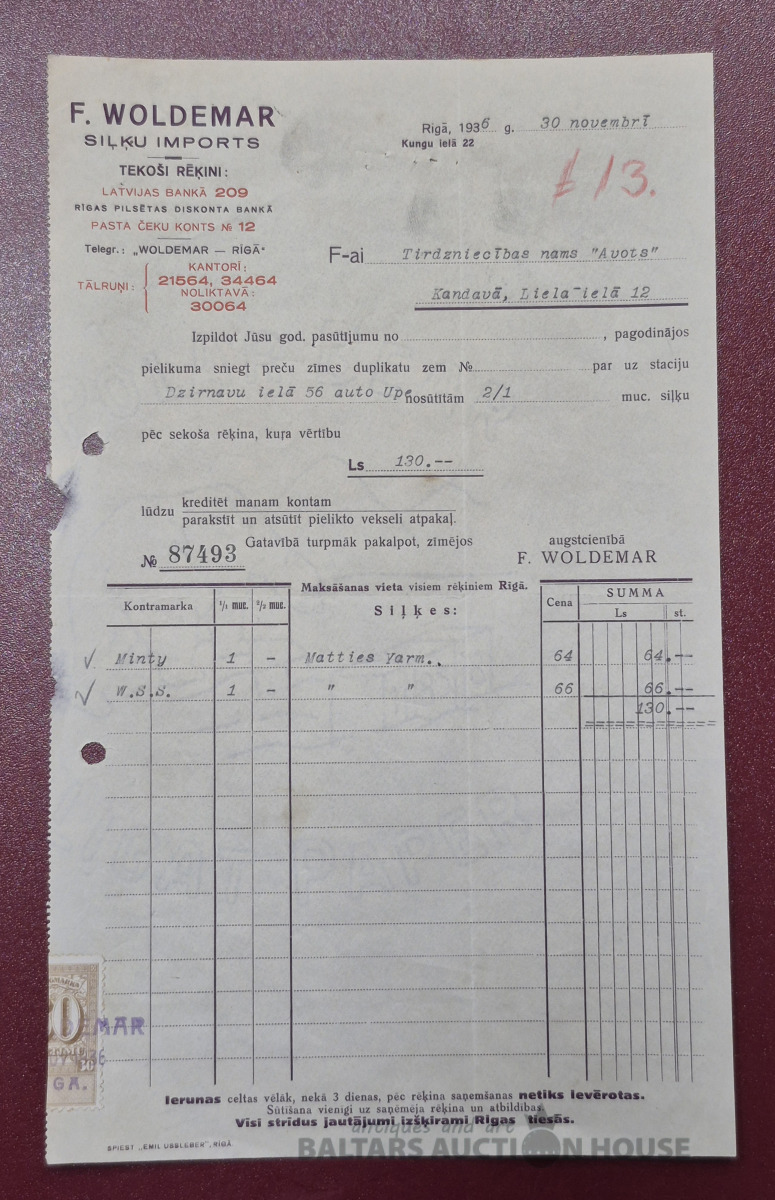 F. WOLDEMAR
SIĻĶU IMPORTS
TEKOŠI RĒĶINI:
LATVIJAS BANKĀ 209
RĪGAS PILSĒTAS DISKONTA BANKĀ
PASTA ČEKU KONTS № 12
Telegr.: „WOLDEMAR — RĪGĀ"
TĀLRUŅI:
KANTORĪ:
21564, 34464
NOLIKTAVĀ:
30064
Rīgā, 1936 g. 30 novembrī
Kungu ielā 22
£13.
F-ai Tirdzniecības nams "Avots"
Kandavā, Liela ielā 12
Izpildot Jūsu god. pasūtījumu no , pagodinājos
pielikuma sniegt preču zīmes duplikatu zem № par uz staciju
Dzirnavu ielā 56 auto Upe nosūtītām 2/1 muc. siļķu
pēc sekoša rēķina, kuŗa vērtību
Ls 130.--
lūdzu kreditēt manam kontam
parakstīt un atsūtīt pielikto vekseli atpakaļ.
Gatavībā turpmāk pakalpot, zīmējos augstcienībā
№ 87493 F. WOLDEMAR
Maksāšanas vieta visiem rēķiniem Rīgā.
Kontramarka 1/1 muc. 2/2 muc. Siļķes: Cena SUMMA
Ls st.
Minty 1 - Matties Yarm.. 64 64.--
W.S.S. 1 - " " 66 66.--
130.--
MAR
36
GĀ.
Ierunas celtas vēlāk, nekā 3 dienas, pēc rēķina saņemšanas netiks ievērotas.
Sūtīšana vienīgi uz saņēmēja rēķina un atbildības.
Visi strīdus jautājumi izšķirami Rīgas tiesās.
SPIEST „EMIL USSLEBER", RĪGĀ
antiques and art
BALTARS AUCTION HOUSE